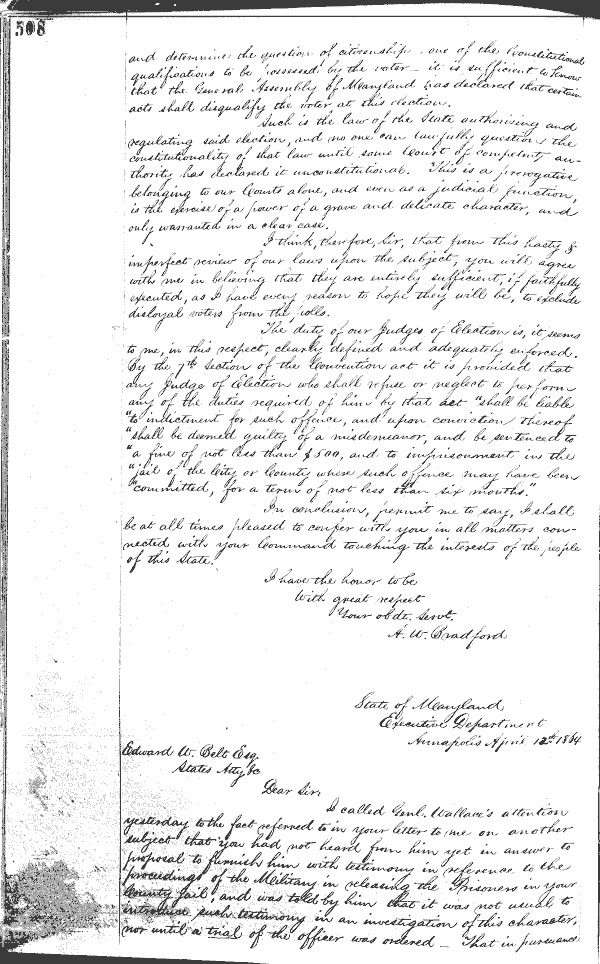 508
and determine the question of citizenship - one of the Constitutional
qualifications to be possessed by the voter - it is sufficient to know
that the General Assembly of Maryland has declared that certain
acts shall disqualify the voter at this election.
Such is the law of the State authorising and
regulating said election, and no one can lawfully question the
constitutionality of that law until some Court of competent au-
thority has declared it unconstitutional. This is a prerogative
belonging to our Courts alone, and even as a judicial function,
is the exercise of a power of a grave and delicate character, and
only warranted in a clear case.
I think, therefore, Sir, that from this hasty &
imperfect review of our laws upon the subject, you will agree
with me in believing that they are entirely sufficient, if faithfully
executed, as I have every reason to hope they will be, to exclude
disloyal voters from the polls.
The duty of our Judges of Election is, it seems
to me, in this respect, clearly defined and adequately enforced.
By the 7th Section of the Convention act it is provided that
any Judge of Election who shall refuse or neglect to perform
any of the duties required of him by that act "shall be liable
"to indictment for such offence, and upon conviction thereof
"shall be deemed guilty of a misdemeanor, and be sentenced to
"a fine of not less than $500, and to imprisonment in the
"jail of the City or County where such offence may have been
"committed, for a term of not less than six months."
In conclusion, permit me to say, I shall
be at all times pleased to confer with you in all matters con-
nected with your Command touching the interests of the people
of this State.
I have the honor to be
With great respect
Your obdt. Servt.
A. W. Bradford
State of Maryland
Executive Department
Annapolis April 12th 1864
Edward W. Belt Esq.
States Atty, &c
Dear Sir,
I called Genl. Wallace's attention
yesterday to the fact referred to in your letter to me on another
subject that you had not heard from him yet in answer to
proposal to furnish him with testimony in reference to the
proceedings of the Military in releasing the Prisoners in your
County Jail, and was told by him that it was not usual to
introduce such testimony in an investigation of this character,
nor until a trial of the officer was ordered - That in pursuance